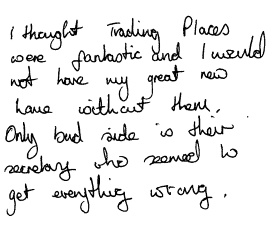 I thought Trading Places
were fantastic and I would
not have my great new
home without them.
Only bad side is their
secretary who seemed to
get everything wrong.